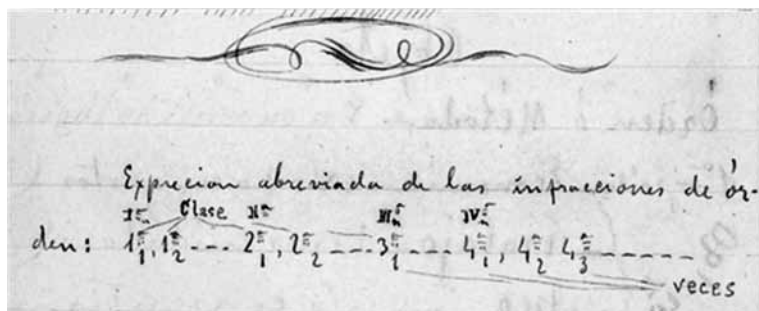 Exprecion abreviada de las infracciones de ór-
Iª Clase IIª IIIª IVª
den: 1ª₁, 1ª₂ --- 2ª₁, 2ª₂ ---- 3ª₁ ---- 4ª₁, 4ª₂ 4ª₃ ------
veces